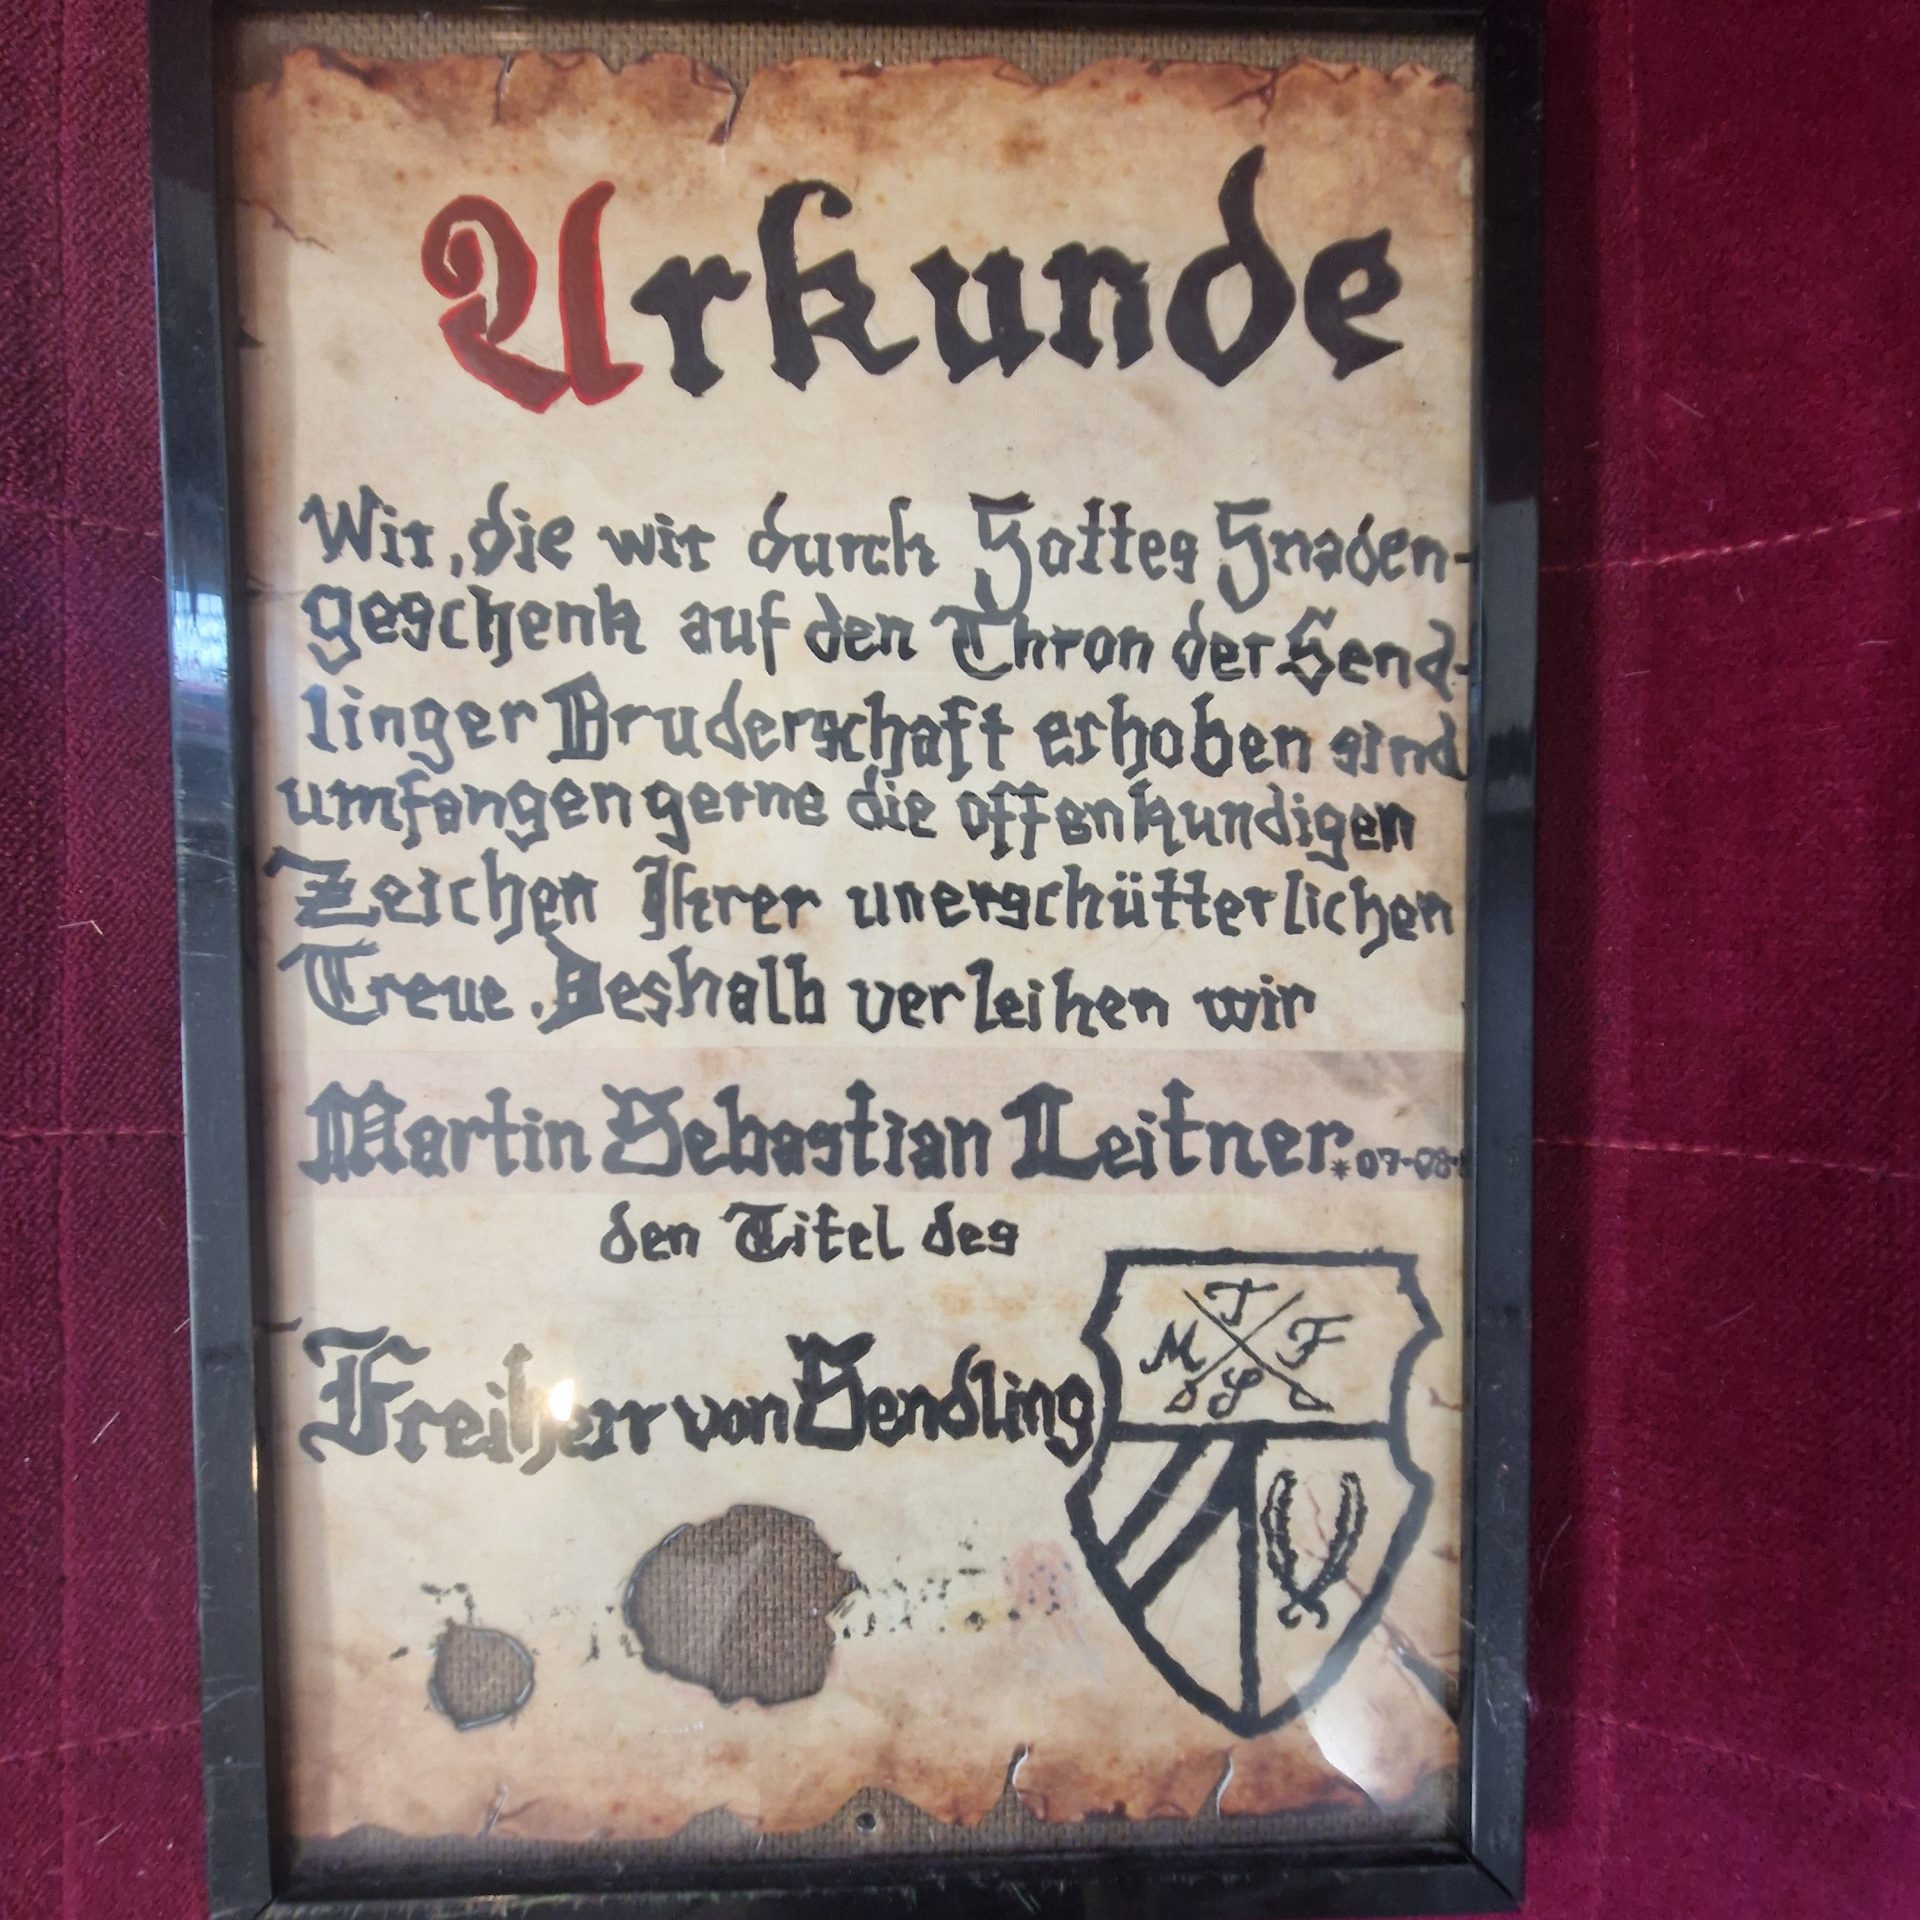 Urkunde
Wir, die wir durch Gottes Gnaden-
geschenk auf den Thron der Send-
linger Bruderschaft erhoben sind
umfangen gerne die offenkundigen
Zeichen Ihrer unerschütterlichen
Treue. Deshalb verleihen wir
Martin Sebastian Leitner. *07-08-
den Titel des
Freiherr von Sendling
T
M F
S